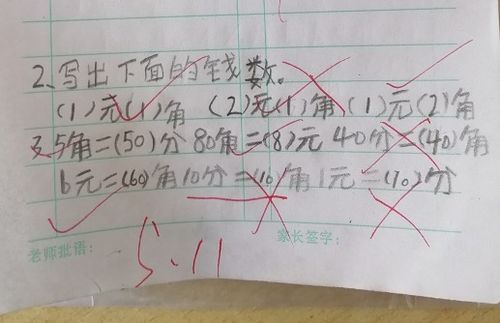 2、写出下面的钱数。
(1)元(1)角 (2)元(1)角 (1)元(2)角
3、5角=(50)分 80角=(8)元 40分=(40)角
6元=(60)角 10分=(10)角 1元=(10)分
5.11
老师批语: 家长签字: